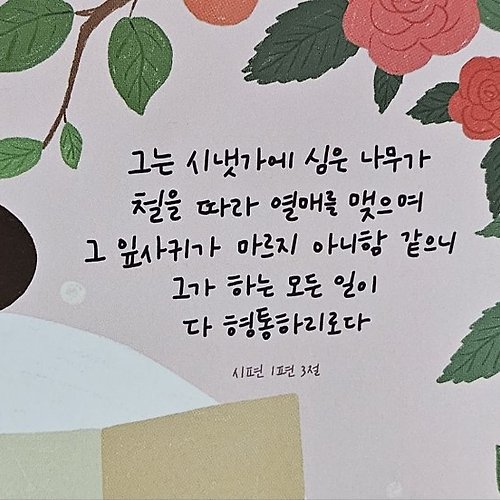 그는 시냇가에 심은 나무가
철을 따라 열매를 맺으며
그 잎사귀가 마르지 아니함 같으니
그가 하는 모든 일이
다 형통하리로다
시편 1편 3절